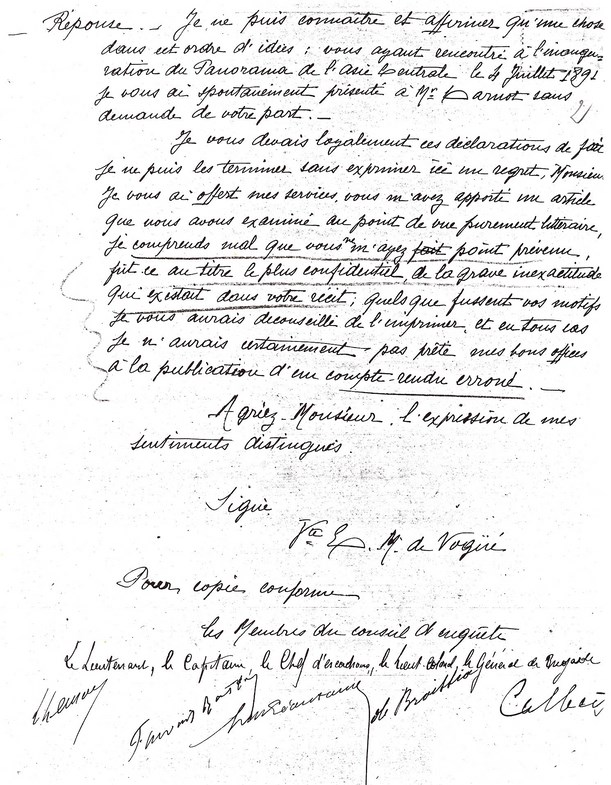 _ Réponse. _ Je ne puis connaître et affirmer qu'une chose
dans cet ordre d'idées : vous ayant rencontré à l'inaugu-
ration du Panorama de l'Asie Centrale le 4 Juillet 1891
je vous ai spontanément présenté à Mr Carnot sans
demande de votre part. _
Je vous devais loyalement ces déclarations de fait
je ne puis les terminer sans exprimer ici un regret, Monsieur.
Je vous ai offert mes services, vous m'avez apporté un article
que nous avons examiné au point de vue purement littéraire,
je comprends mal que vous ne m'ayez fait point prévenu,
fût ce au titre le plus confidentiel, de la grave inexactitude
qui existait dans votre récit ; quels que fussent vos motifs
je vous aurais déconseillé de l'imprimer et en tous cas
je n'aurais certainement pas prêté mes bons offices
à la publication d'un compte-rendu erroné. _
Agréez Monsieur, l'expression de mes
sentiments distingués.
Signé
Vte E. M. de Vogüé
Pour copie conforme
Les Membres du conseil d'enquête
Le Lieutenant, le Capitaine, le Chef d'escadrons, le Lieut. Colonel, le Général de Brigade